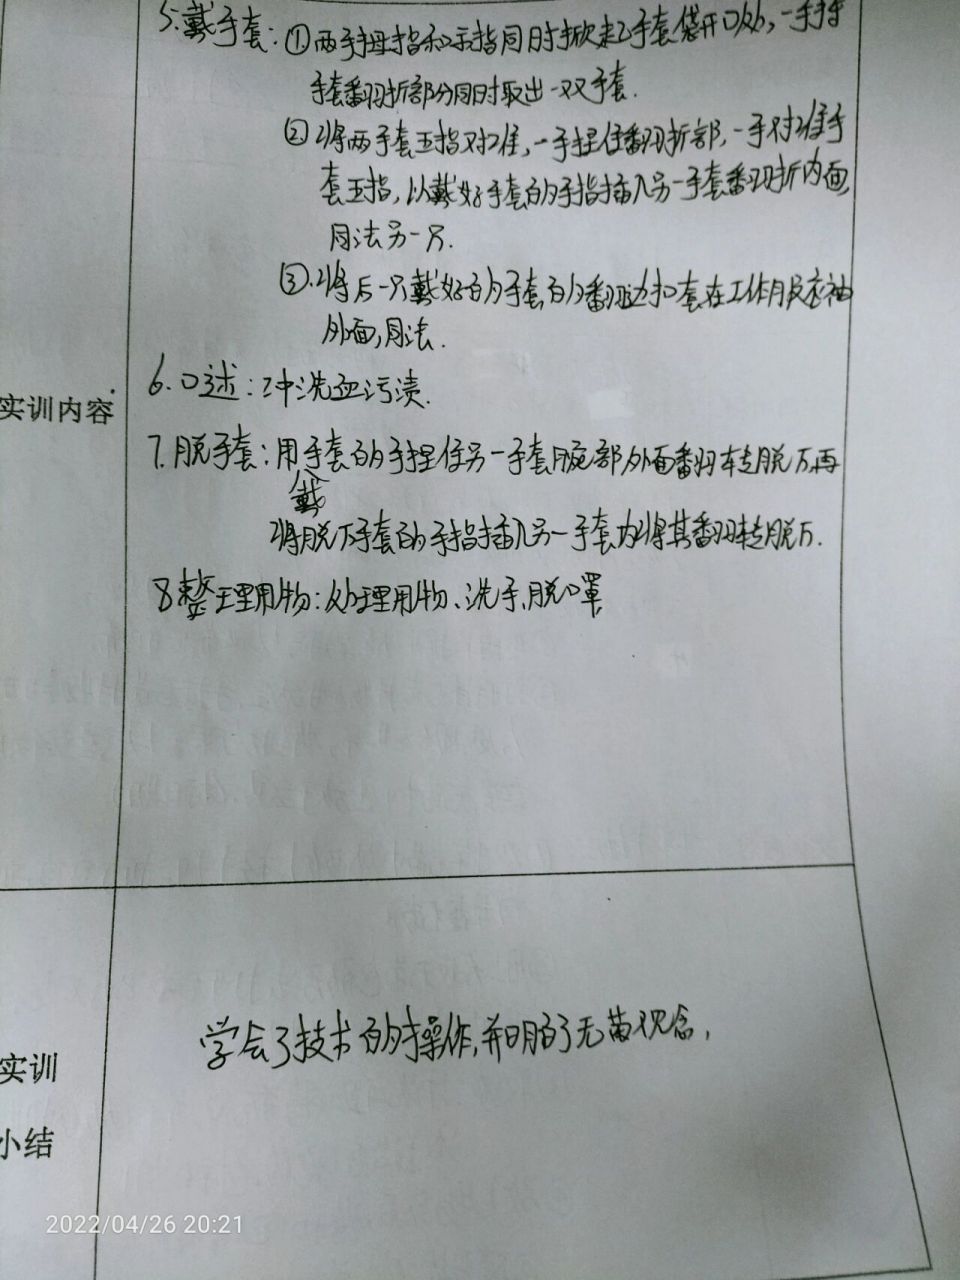 5.戴手套:①两手拇指和示指同时掀起手套袋开口处,一手持
手套翻折部分同时取出一双手套.
②将两手套五指对准,一手捏住翻折部,一手对准手
套五指,以戴好手套的手指插入另一手套翻折内面
同法另一只.
③.将后一只戴好的手套的翻边扣套在工作服衣袖
外面,同法.
6.口述:冲洗血污渍.
实训内容
7.脱手套:用戴手套的手捏住另一手套腕部外面翻转脱下,再
将脱下手套的手指插入另一手套内将其翻转脱下.
8整理用物:处理用物、洗手,脱口罩
学会了技术的操作,并明白了无菌观念,
实训
小结
2022/04/26 20:21